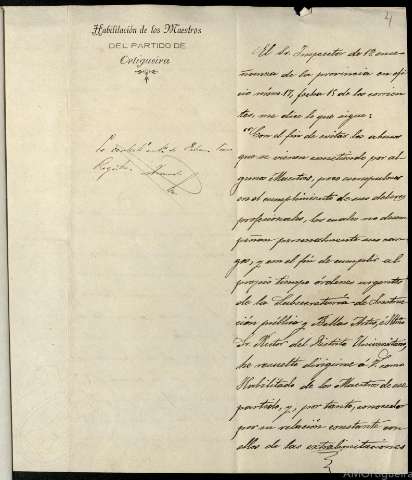 Habilitación de los Maestros
DEL PARTIDO DE
Ortigueira
4
El Sr. Inspector de 1ª ense-
ñanza de la provincia en ofi-
cio núm. 17, fecha 15 de los corrien-
tes, me dice lo que sigue:
"Con el fin de evitar los abusos
que se vienen cometiendo por al-
gunos Maestros, poco escrupulosos
en el cumplimiento de sus deberes
profesionales, los cuales no desem-
peñan personalmente sus car-
gos, y con el fin de cumplir al
propio tiempo órdenes urgentes
de la Subsecretaría de Instruc-
ción pública y Bellas Artes, é Iltmo
Sr. Rector del Distrito Universitario,
he resuelto dirigirme á V. como
Habilitado de los Maestros de ese
partido, y, por tanto, conocedor
por su relación constante con
ellos de las extralimitaciones
AMOrtigueira